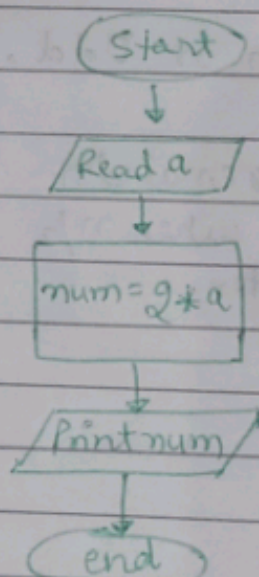 Start
Read a
num = 2 * a
Print num
end